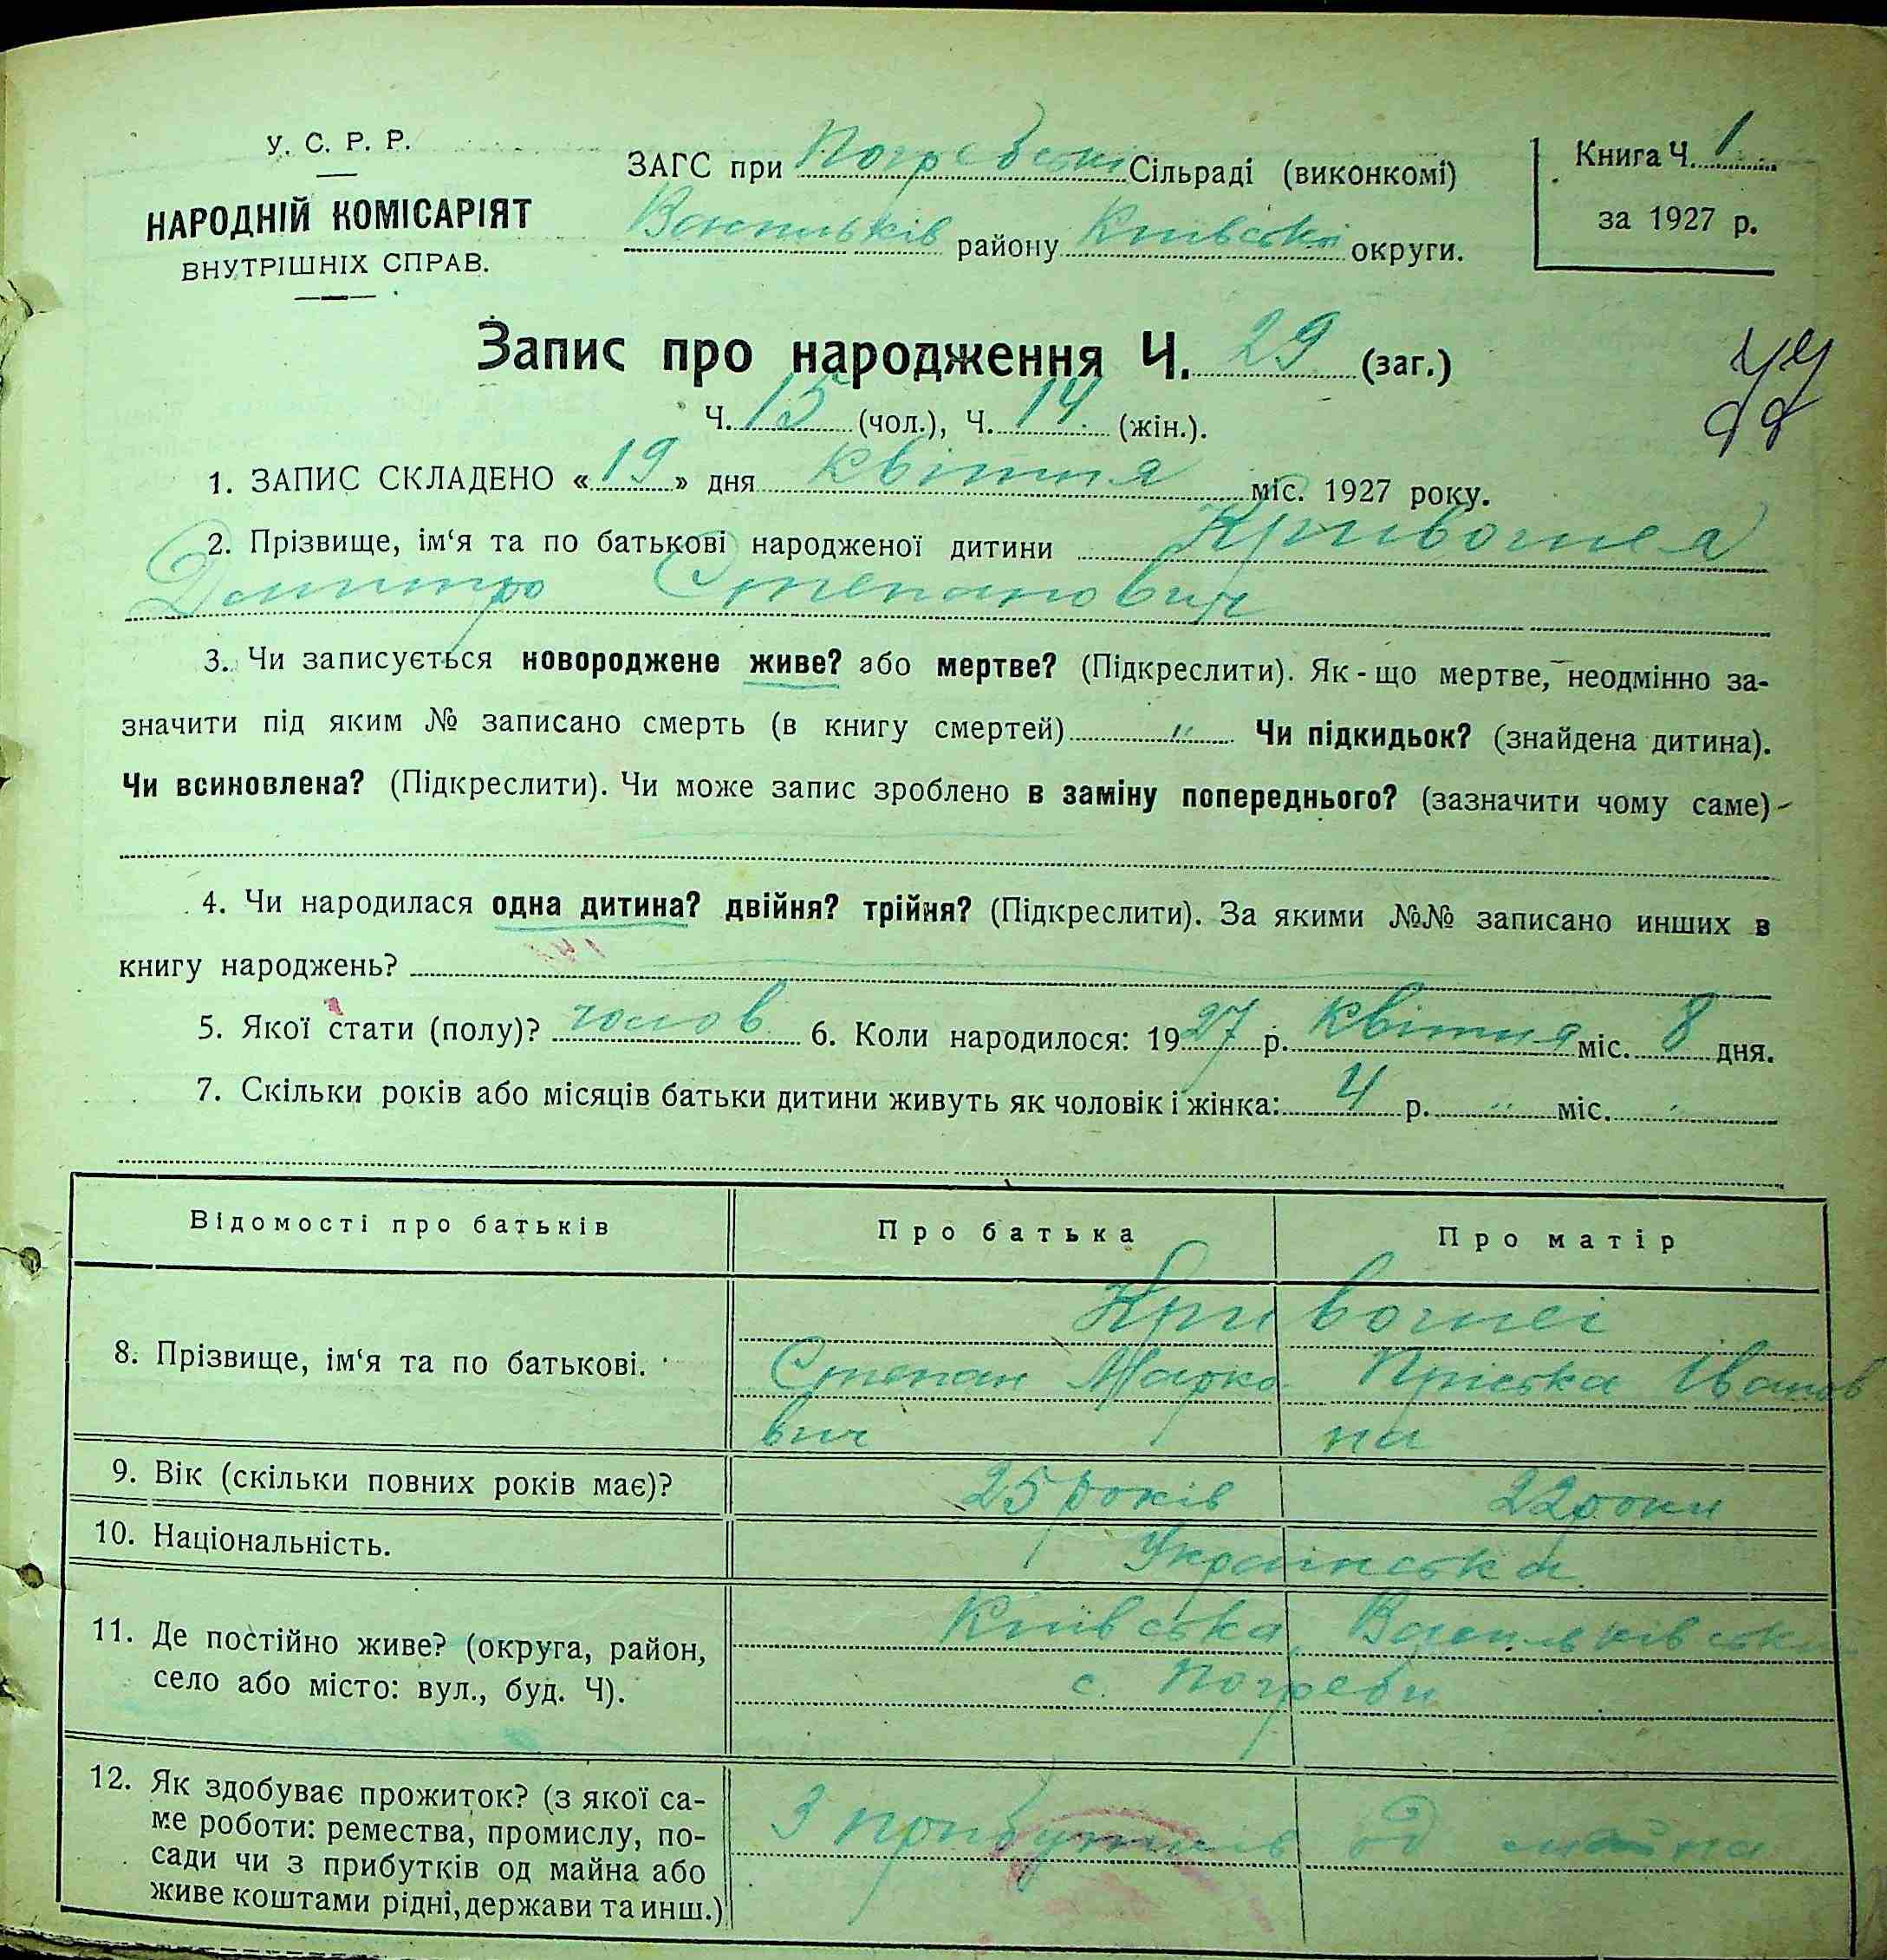 У. С. Р. Р.
НАРОДНІЙ КОМІСАРІЯТ
ВНУТРІШНІХ СПРАВ.
ЗАГС при Погребські Сільраді (виконкомі)
Васильків району Київської округи.
Книга Ч. 1
за 1927 р.
Запис про народження Ч. 29 (заг.)
Ч. 15 (чол.), Ч. 14 (жін.).
1. ЗАПИС СКЛАДЕНО « 19 » дня квітня міс. 1927 року.
2. Прізвище, ім‘я та по батькові народженої дитини Кривошея
Дмитро Степанович
3. Чи записується новороджене живе? або мертве? (Підкреслити). Як-що мертве, неодмінно за-
значити під яким № записано смерть (в книгу смертей) " Чи підкидьок? (знайдена дитина).
Чи всиновлена? (Підкреслити). Чи може запис зроблено в заміну попереднього? (зазначити чому саме) -
4. Чи народилася одна дитина? двійня? трійня? (Підкреслити). За якими №№ записано инших в
книгу народжень?
5. Якої стати (полу)? чолов 6. Коли народилося: 1927 р. Квітня міс. 8 дня.
7. Скільки років або місяців батьки дитини живуть як чоловік і жінка: 4 р. " міс. "
Відомості про батьків Про батька Про матір
Кривошеі
8. Прізвище, ім‘я та по батькові. Степан Марко Пріська Іванов
вич на
9. Вік (скільки повних років має)? 25 років 22 роки
10. Національність. Українська
11. Де постійно живе? (округа, район, Київська, Васильківська
село або місто: вул., буд. Ч). с. Погреби
12. Як здобуває прожиток? (з якої са- З прибутків од майна
ме роботи: ремества, промислу, по-
сади чи з прибутків од майна або
живе коштами рідні, держави та инш.)